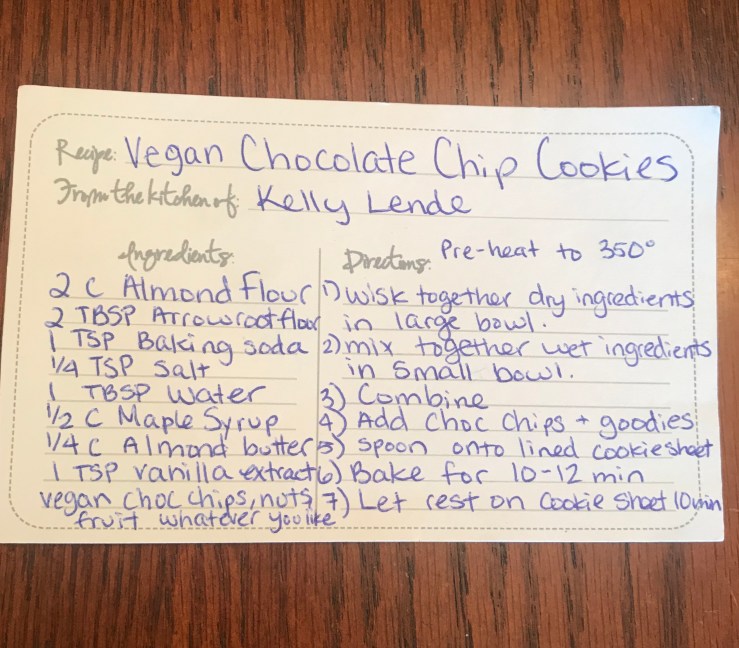 Recipe: Vegan Chocolate Chip Cookies
From the kitchen of: Kelly Lende
Ingredients:
2 C Almond Flour
2 TBSP Arrowroot flour
1 TSP Baking soda
1/4 TSP Salt
1 TBSP Water
1/2 C Maple Syrup
1/4 C Almond butter
1 TSP vanilla extract
vegan choc chips, nuts,
fruit whatever you like
Directions: Pre-heat to 350°
1) wisk together dry ingredients
in large bowl.
2) mix together wet ingredients
in small bowl.
3) Combine
4) Add choc chips + goodies
5) spoon onto lined cookie sheet
6) Bake for 10-12 min
7) Let rest on Cookie Sheet 10 min